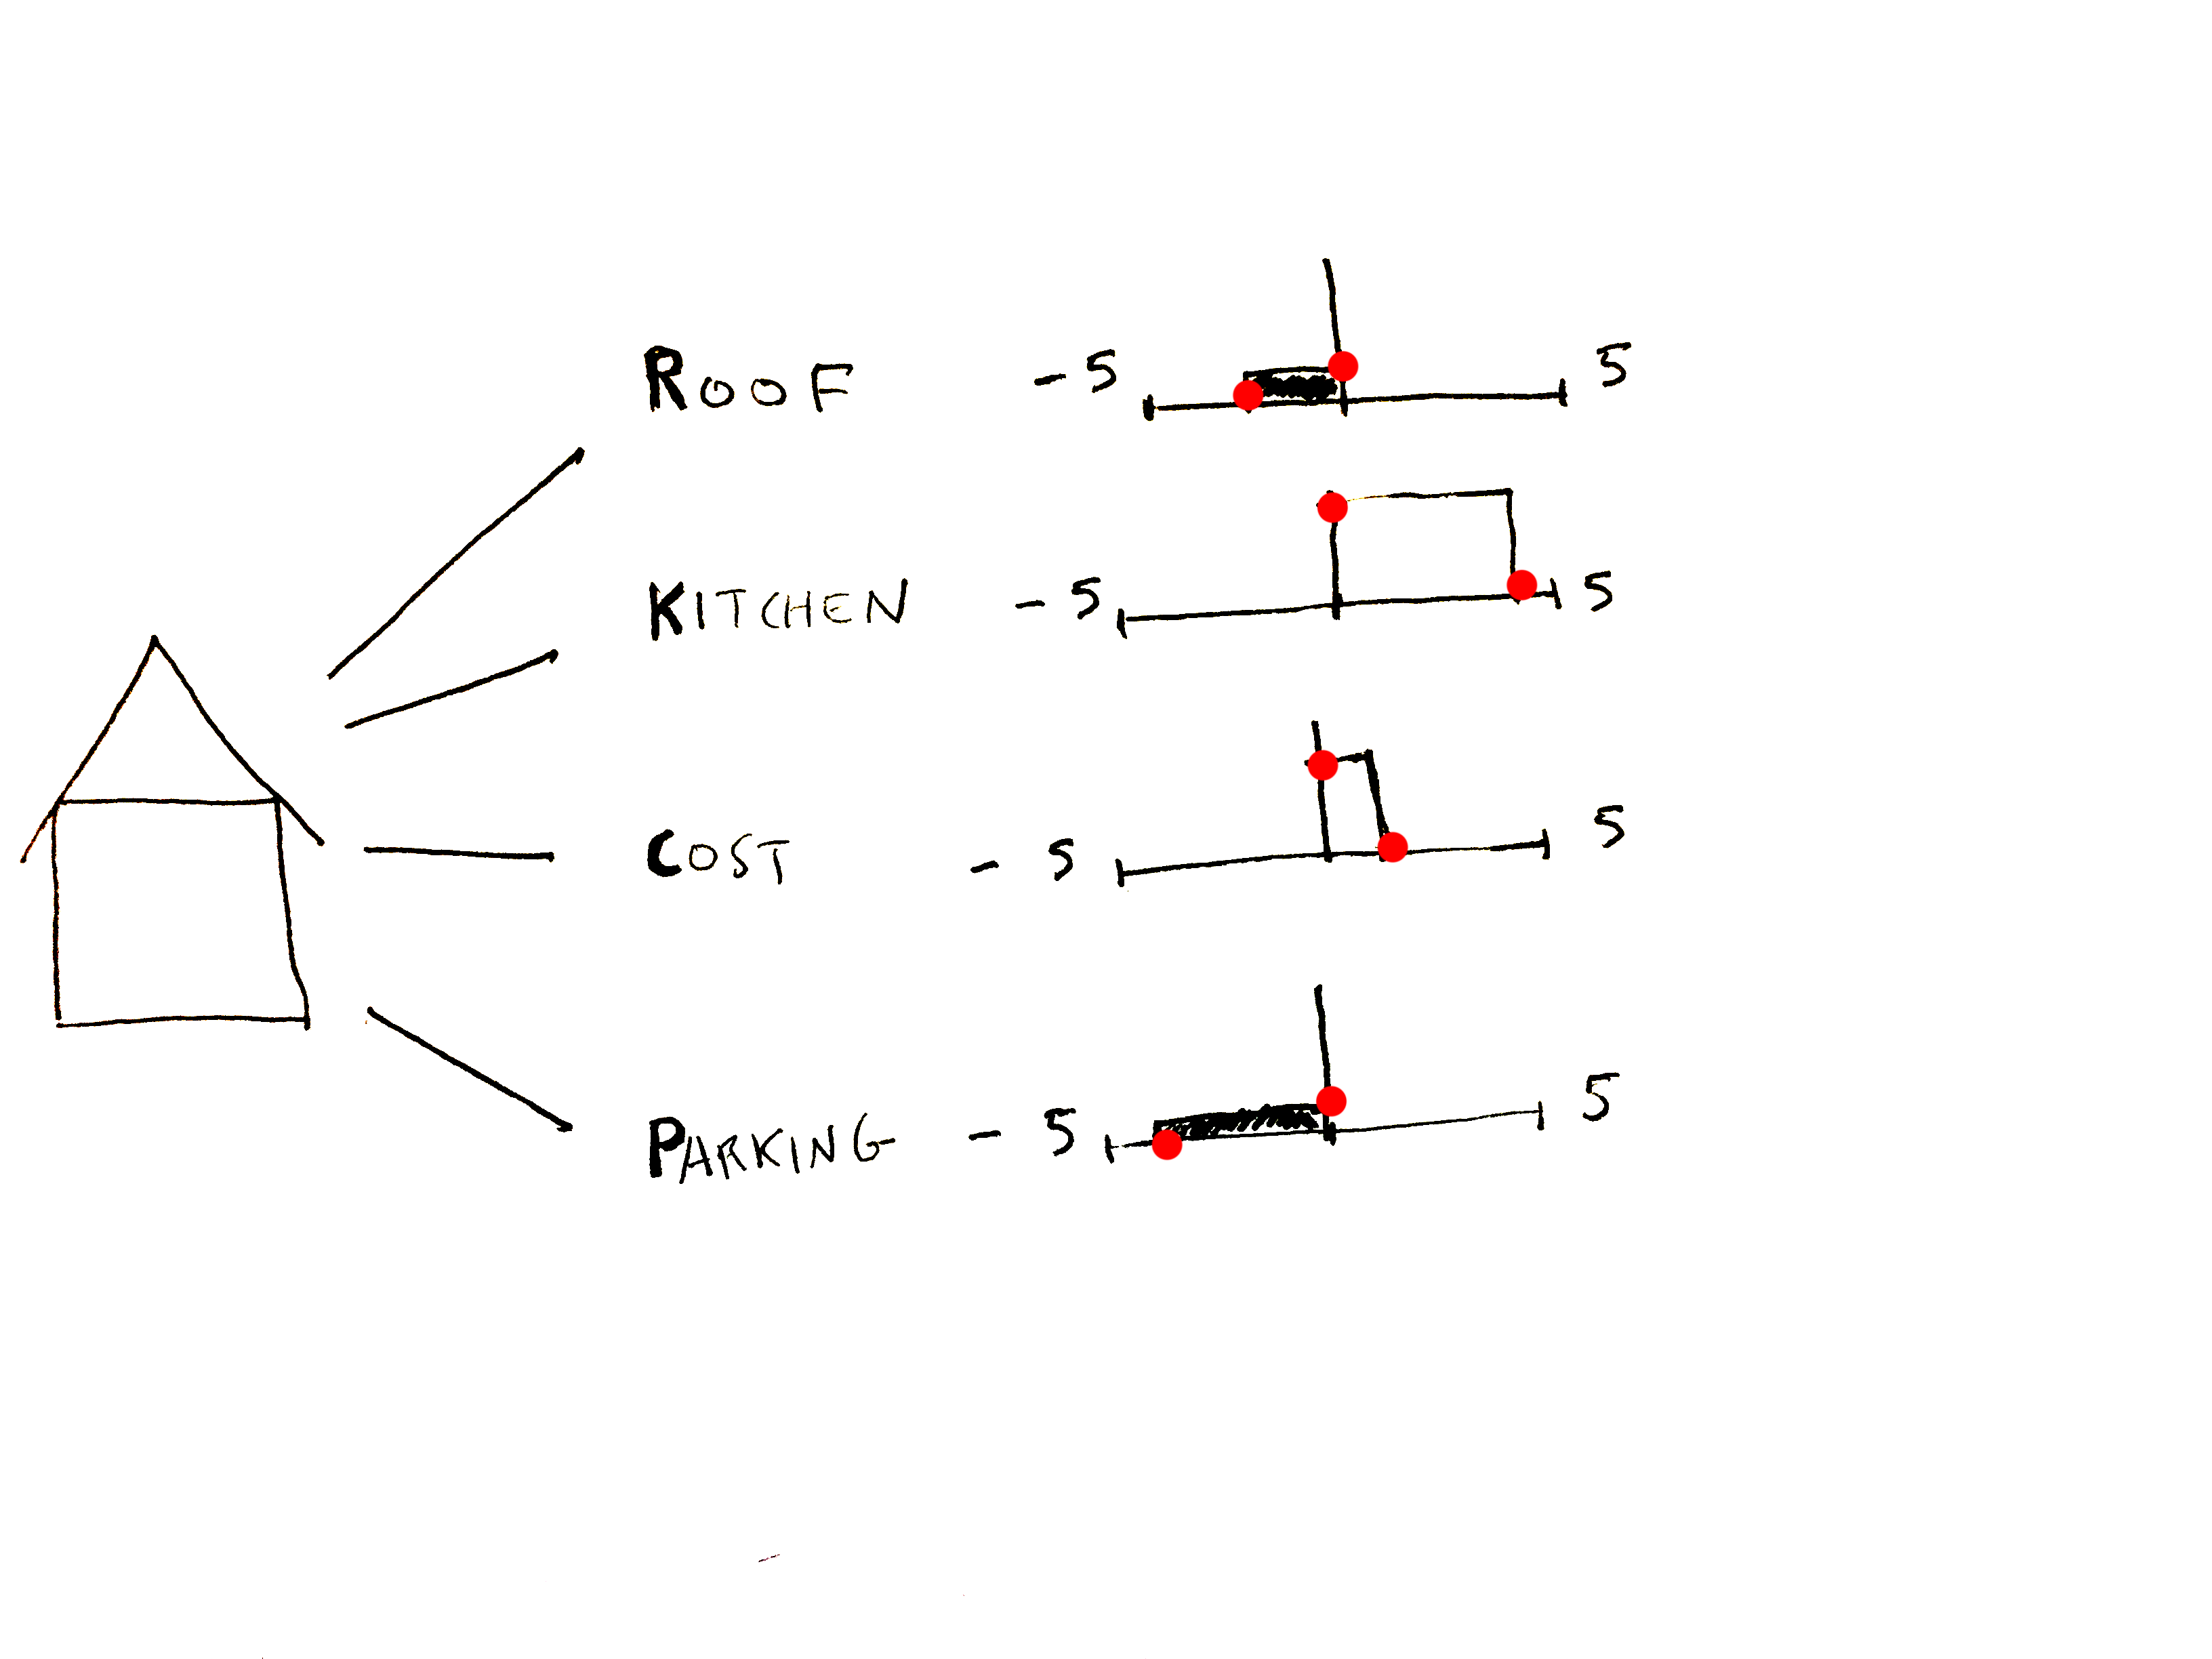 ROOF -5 5
KITCHEN -5 5
COST -5 5
PARKING -5 5